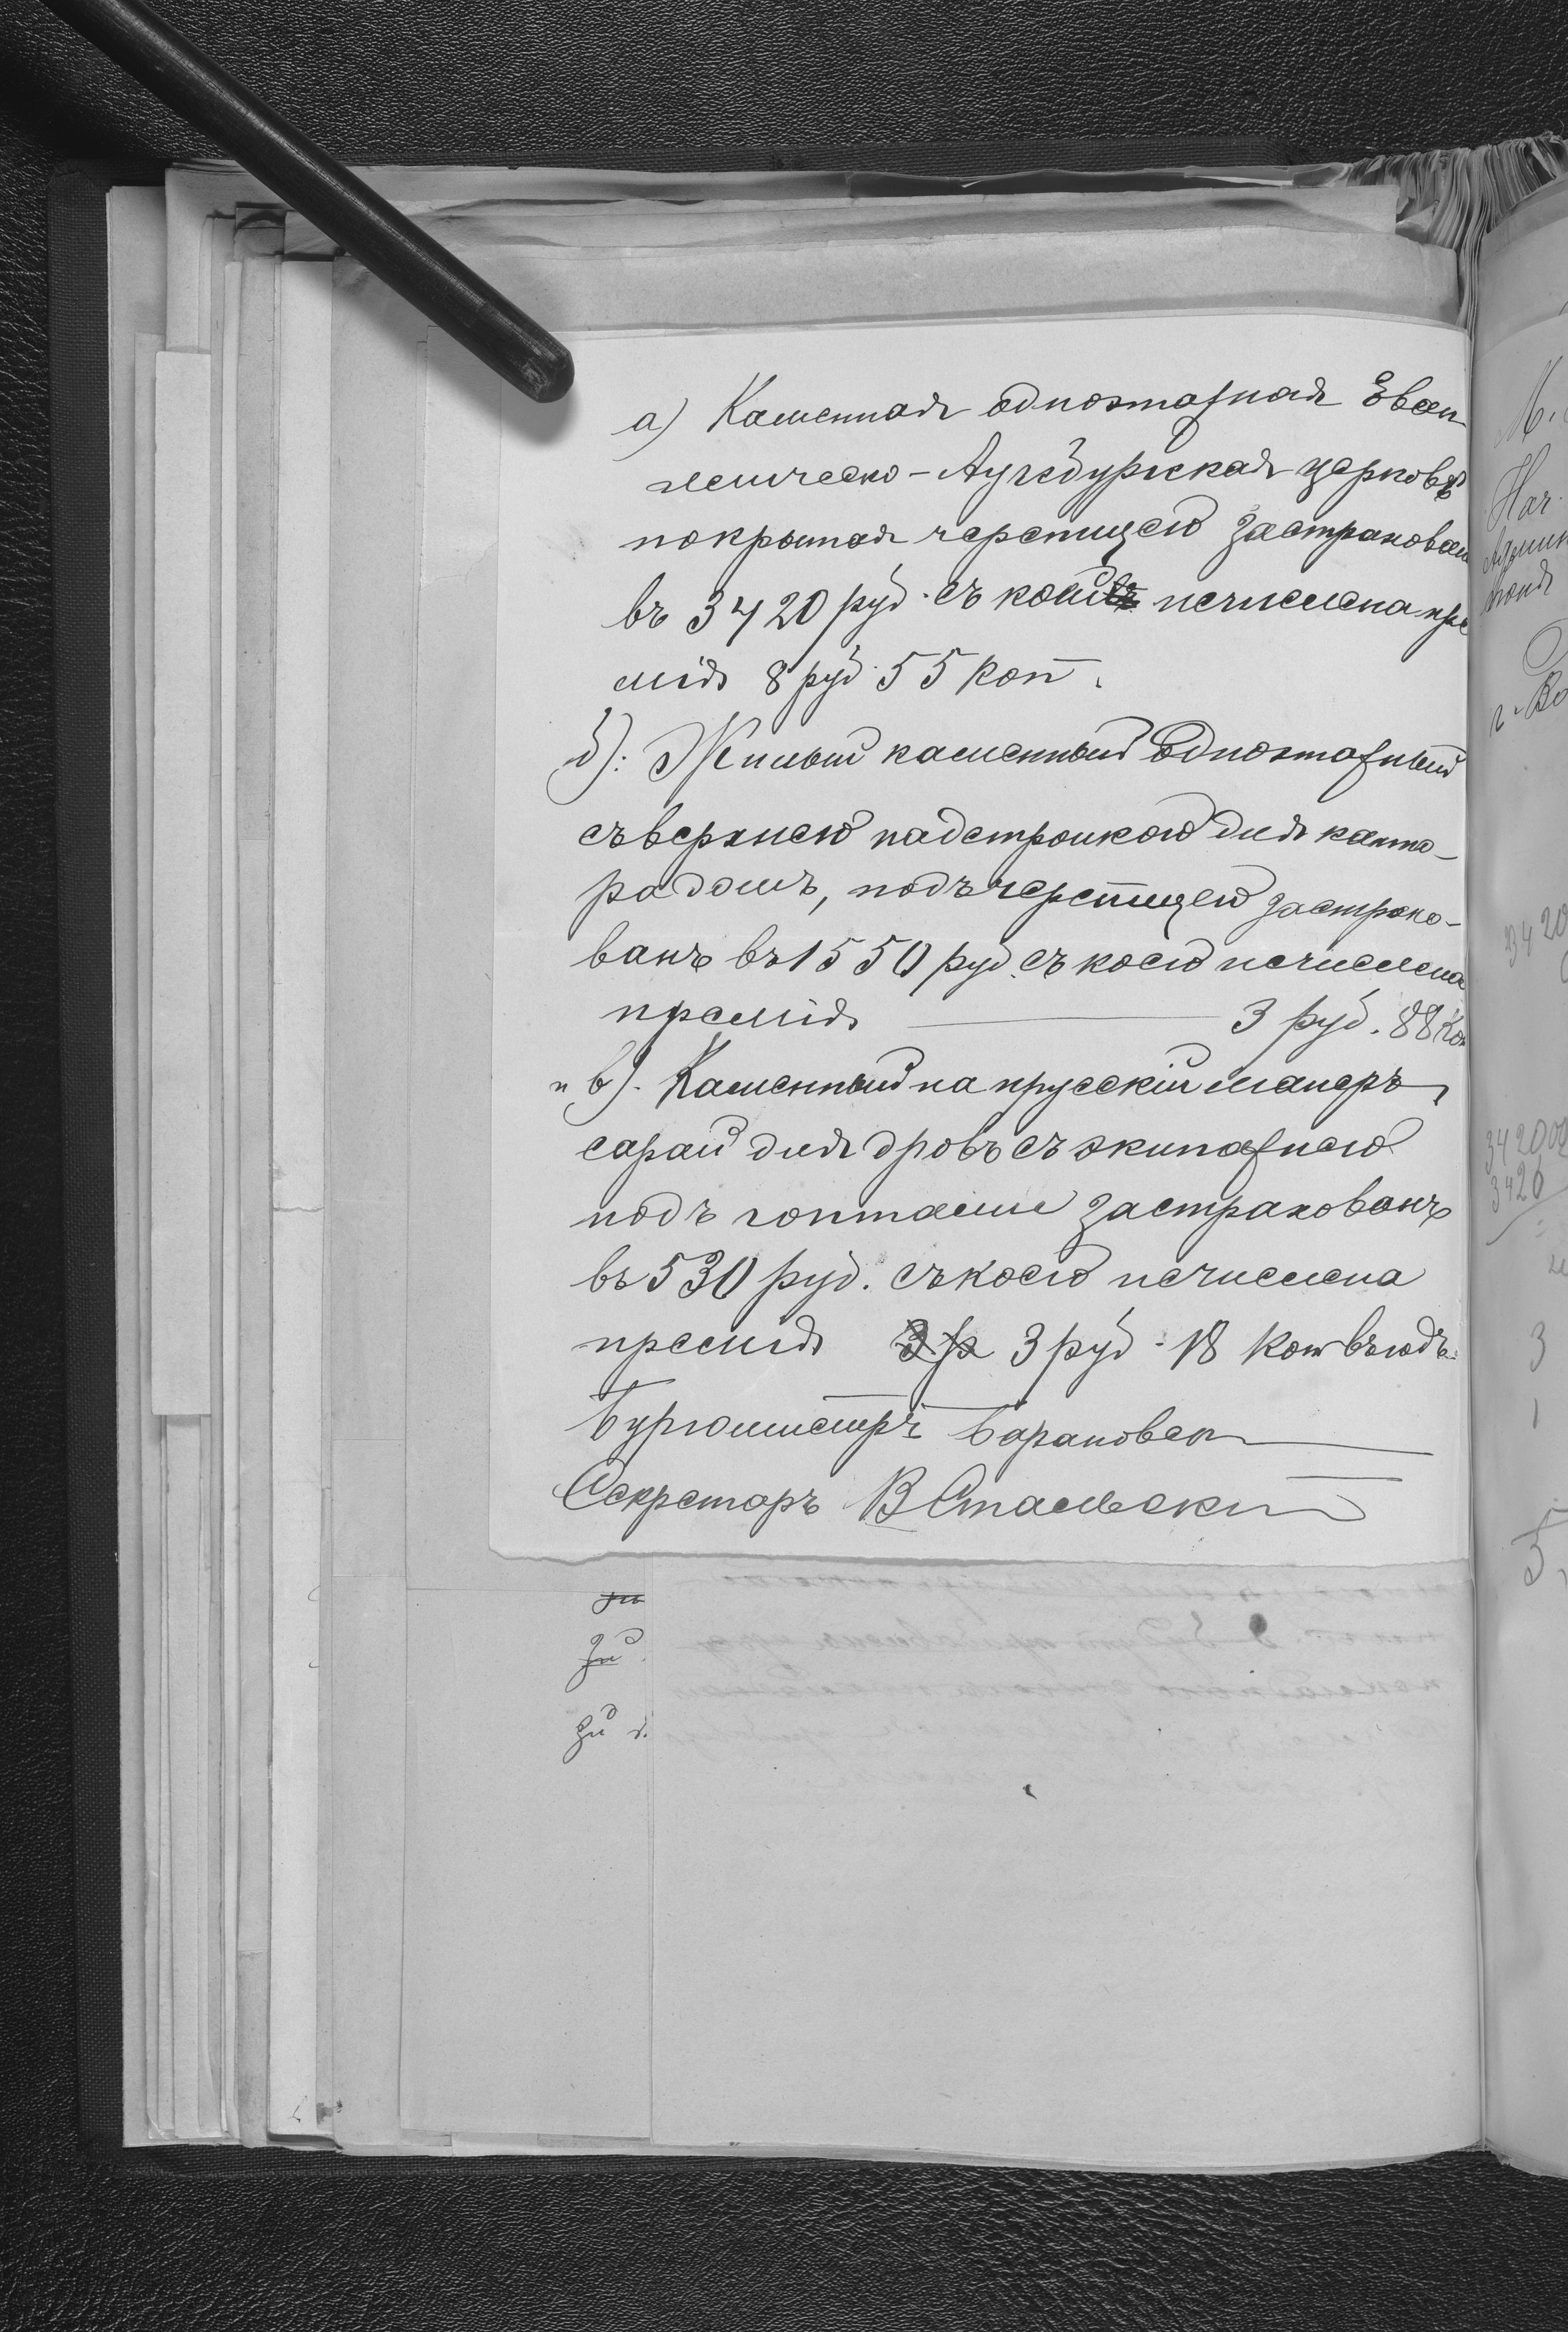 а) Каменная одноэтажная Еван
лическо-Аугсбурская церковь
покрытая черепицею застрахован
въ 3420 руб. съ коей исчислена пре
мія 8 руб. 55 коп.
б): Жилый каменный одноэтажный
съ верхнею надстройкою для канто-
ра домъ, подъ черепицею застрахо-
ванъ въ 1550 руб. съ коею исчислена
премія 3 руб. 88 коп
и в). Каменный на прусскій манеръ,
сарай для дровъ съ экипажнею
подъ гонтами застрахованъ
въ 530 руб. съ коею исчислена
премія 3 р 3 руб. 18 коп въ годъ.
Бургомистръ Барановск
Секретарь В Стальски
zu
zu
zu d.
М.
Нач
Админ
г. Во
3420
34200
3420
3
1
5,